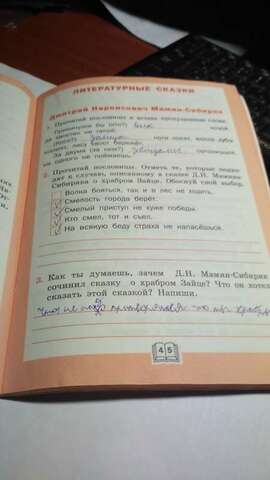 ЛИТЕРАТУРНЫЕ СКАЗКИ
Дмитрий Наркисович Мамин-Сибиряк
1. Прочитай пословицы и впиши пропущенные слова.
овечьей
За хвостом не
ноги носят, волка зубы
кормят, лису хвост бережёт.
За двумя (за кем?) зайцами погонишься,
ни одного не поймаешь.
2. Прочитай пословицы. Отметь те, которые подходят
к случаю, описанному в сказке Д.Н. Мамина-
Сибиряка о храбром Зайце. Обоснуй свой выбор.
Волка бояться, так и в лес не ходить.
Смелость города берёт.
Смелый приступ не хуже победы.
Кто смел, тот и съел.
На всякую беду страха не напасёшься.
3. Как ты думаешь, зачем Д.Н. Мамин-Сибиряк
сочинил сказку о храбром Зайце? Что он хотел
сказать этой сказкой? Напиши.
что не надо притворяться что ты храбрый
45